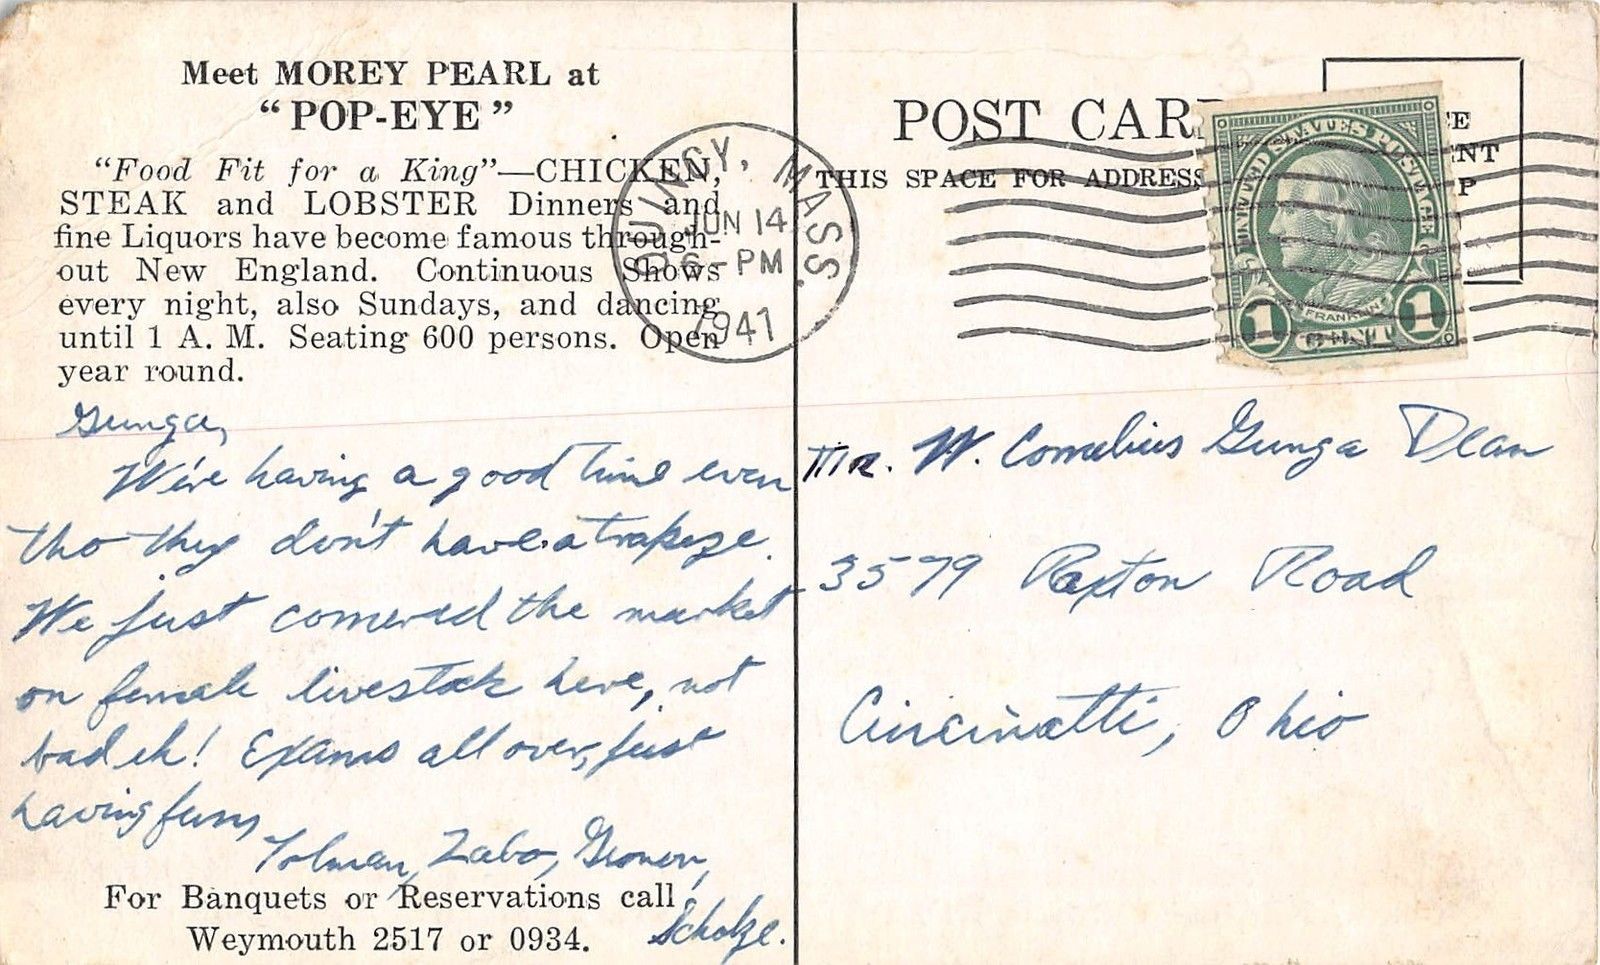 Meet MOREY PEARL at
"POP-EYE"
"Food Fit for a King"—CHICKEN,
STEAK and LOBSTER Dinners and
fine Liquors have become famous through-
out New England. Continuous Shows
every night, also Sundays, and dancing
until 1 A. M. Seating 600 persons. Open
year round.
Gunga,
We're having a good time even
tho they don't have a trapeze.
We just cornered the market
on female livestock here, not
bad eh! Exams all over, just
having fun,
Tolman, Zabo, Gronen,
Scholze.
For Banquets or Reservations call
Weymouth 2517 or 0934.
QUINCY, MASS.
JUN 14
6-PM
1941
POST CAR
THIS SPACE FOR ADDRESS
CE
ENT
P
UNITED STATES POSTAGE
FRANKLIN
1 CENT 1
Mr. W. Cornelius Gunga Dean
3579 Paxton Road
Cincinatti, Ohio